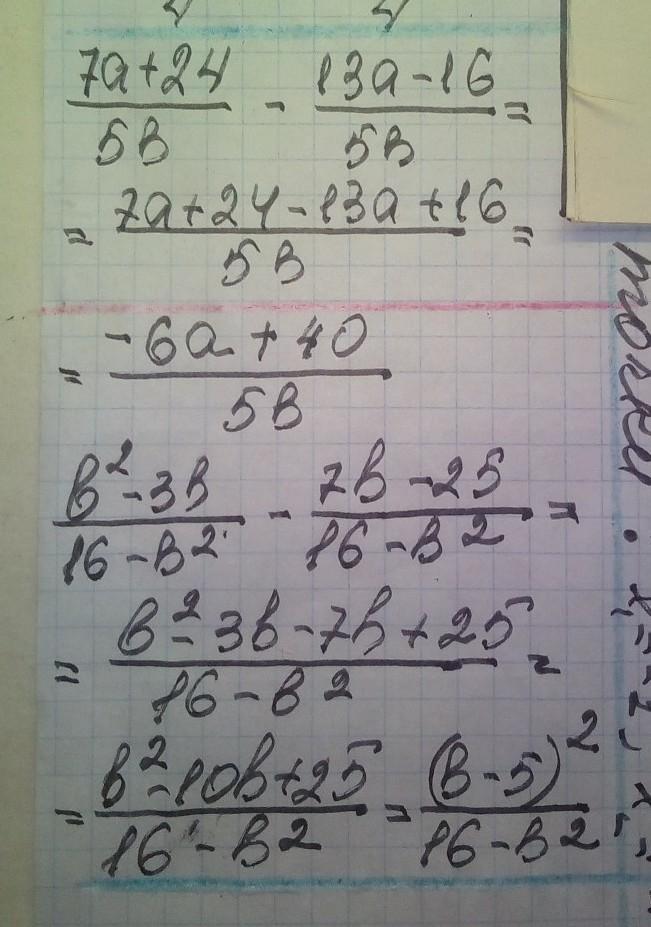 (7a+24)/(5в) - (13a-16)/(5в) =
= (7a+24-13a+16)/(5в) =
= (-6a+40)/(5в)
(в²-3в)/(16-в²) - (7в-25)/(16-в²) =
= (в²-3в-7в+25)/(16-в²) =
= (в²-10в+25)/(16-в²) = (в-5)²/(16-в²);